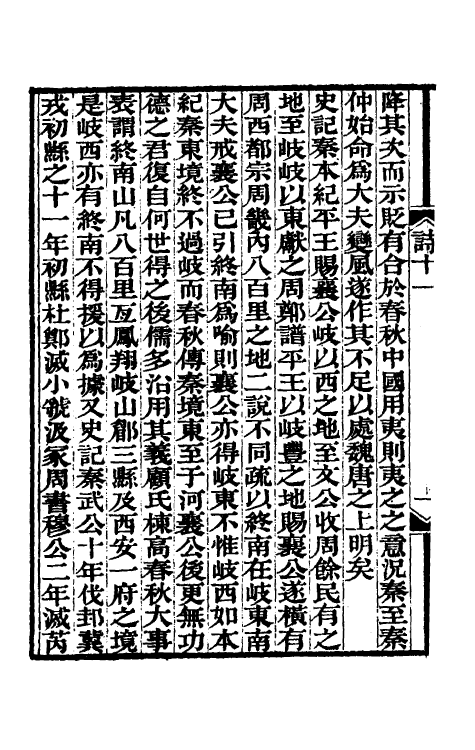 詩十一
降其次而示貶有合於春秋中國用夷則夷之之意況秦至秦
仲始命爲大夫變風遂作其不足以處魏唐之上明矣
史記秦本紀平王賜襄公岐以西之地至文公收周餘民有之
地至岐岐以東獻之周鄭譜平王以岐豐之地賜襄公遂橫有
周西都宗周畿內八百里之地二說不同疏以終南在岐東南
大夫戒襄公已引終南爲喻則襄公亦得岐東不惟岐西如本
紀秦東境終不過岐而春秋傳秦境東至于河襄公後更無功
德之君復自何世得之後儒多沿用其義顧氏棟高春秋大事
表謂終南山凡八百里亙鳳翔岐山郿三縣及西安一府之境
是岐西亦有終南不得援以爲據又史記秦武公十年伐邽冀
戎初縣之十一年初縣杜鄭滅小虢汲冢周書穆公二年滅芮